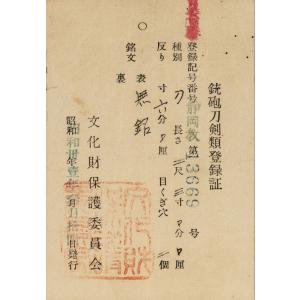 銃砲刀剣類登録証
登録記号番号静岡教第13669号
種別 刀 長さ 二尺 寸 分 厘
反り 寸六分 厘 目くぎ穴 個
銘文 表 無銘
裏
文化財保護委員会
昭和 年 月 日発行